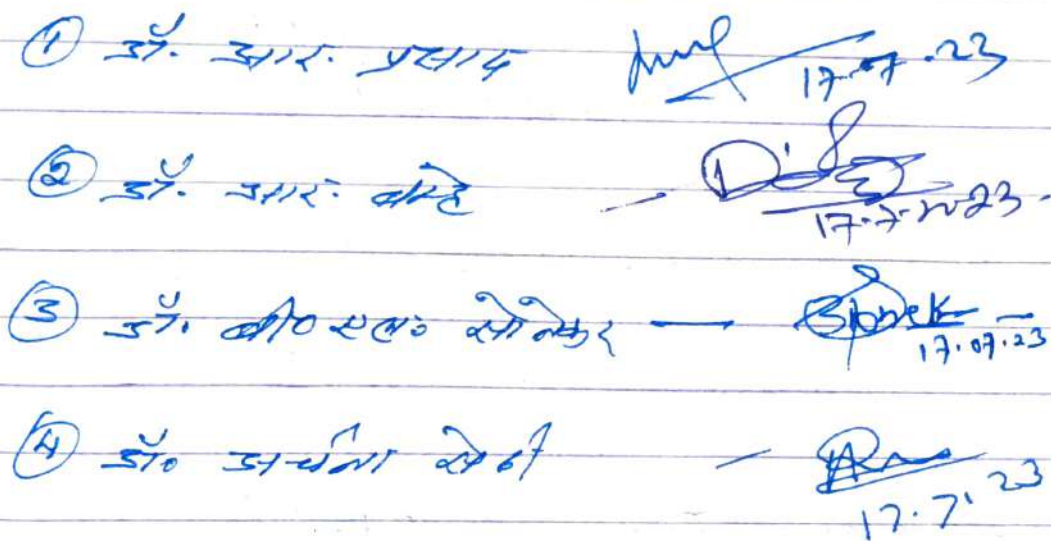 ① डॉ. आर. प्रसाद 17.7.23
② डॉ. आर. - 17.7.2023.
③ डॉ. बी० एल० सोनेकर — 17.07.23
④ डॉ० अर्चना सेठी - 17.7.23